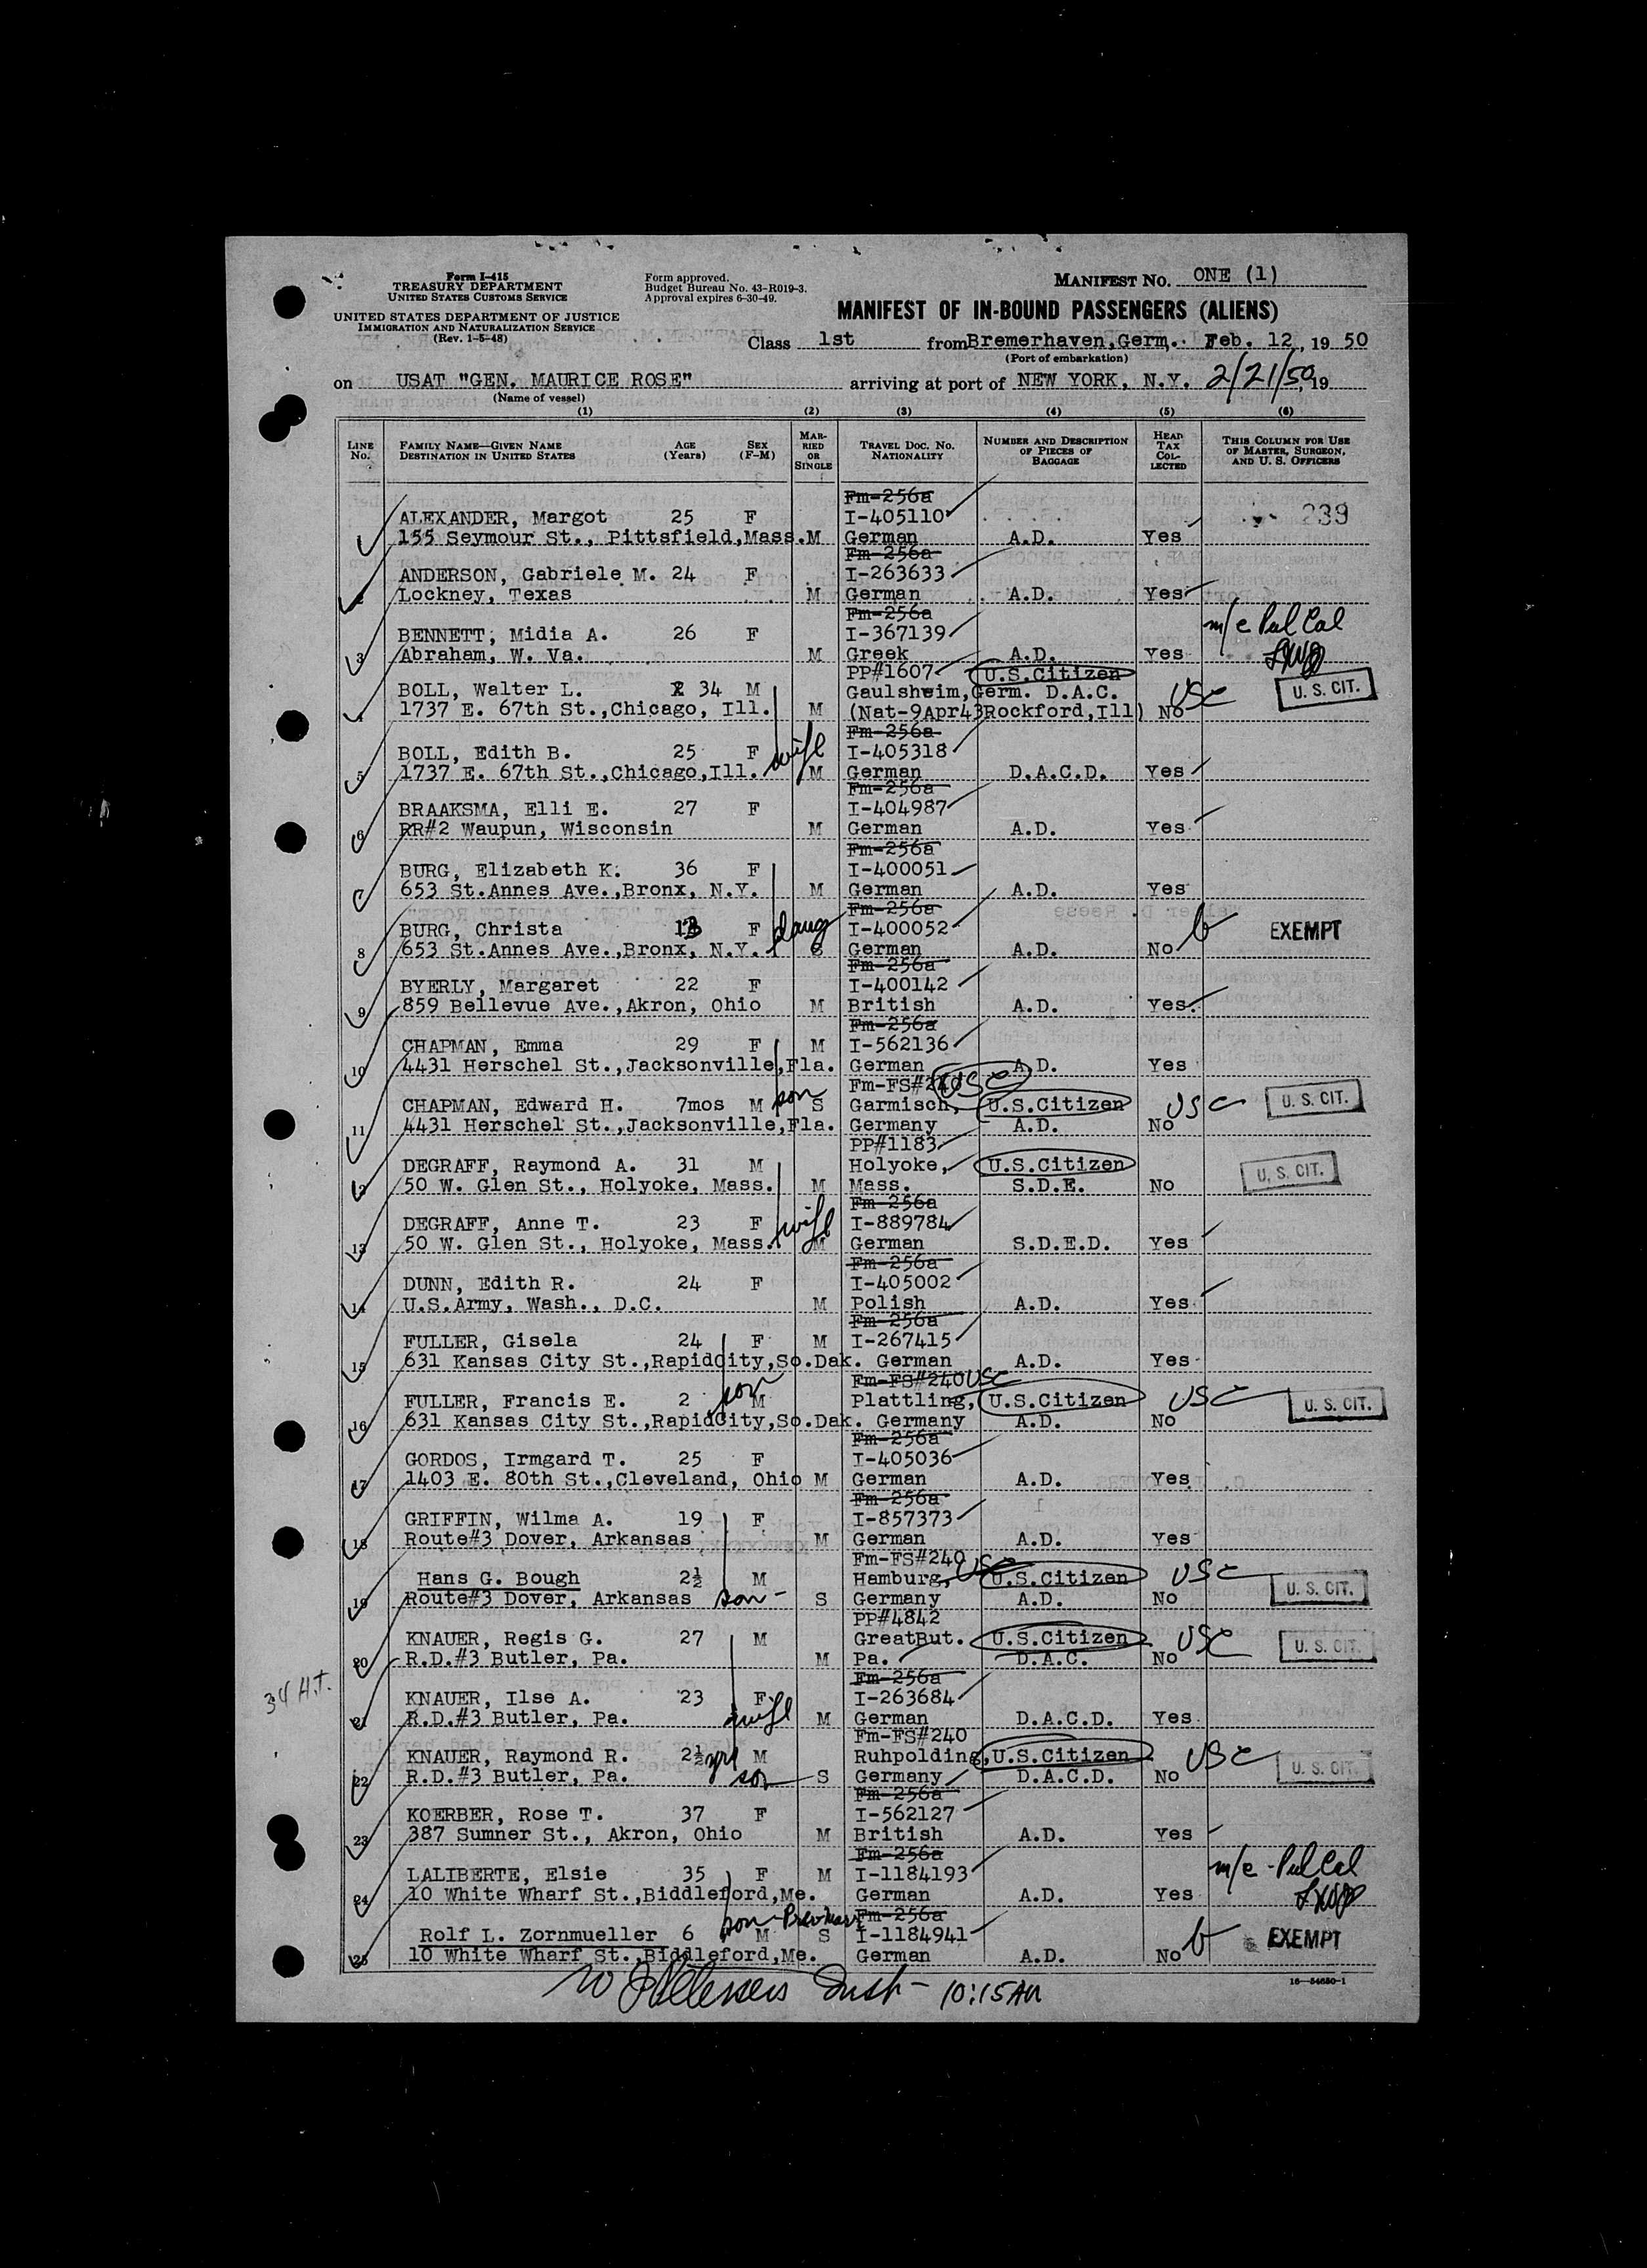 Form I-415
TREASURY DEPARTMENT
UNITED STATES CUSTOMS SERVICE
UNITED STATES DEPARTMENT OF JUSTICE
IMMIGRATION AND NATURALIZATION SERVICE
(Rev. 1-5-48)
Form approved.
Budget Bureau No. 43-R019-3.
Approval expires 6-30-49.
MANIFEST NO. ONE (1)
MANIFEST OF IN-BOUND PASSENGERS (ALIENS)
Class 1st from Bremerhaven,Germ. Feb. 12, 19 50
(Port of embarkation)
on USAT "GEN. MAURICE ROSE" arriving at port of NEW YORK, N.Y. 2/21/50, 19
(Name of vessel)
(1) (2) (3) (4) (5) (6)
LINE No. FAMILY NAME—GIVEN NAME DESTINATION IN UNITED STATES AGE (Years) SEX (F-M) MARRIED OR SINGLE TRAVEL DOC. No. NATIONALITY NUMBER AND DESCRIPTION OF PIECES OF BAGGAGE HEAD TAX COLLECTED THIS COLUMN FOR USE OF MASTER, SURGEON, AND U. S. OFFICERS
Fm-256a
ALEXANDER, Margot 25 F I-405110 239
1 155 Seymour St., Pittsfield,Mass. M German A.D. Yes
Fm-256a
ANDERSON, Gabriele M. 24 F I-263633
2 Lockney, Texas M German A.D. Yes
Fm-256a m/c Pul Cal
BENNETT, Midia A. 26 F I-367139
3 Abraham, W. Va. M Greek A.D. Yes
PP#1607 U.S.Citizen
BOLL, Walter L. 34 M Gaulsheim,Germ. D.A.C. USC U. S. CIT.
4 1737 E. 67th St.,Chicago, Ill. M (Nat-9Apr43Rockford,Ill) No
Fm-256a
BOLL, Edith B. 25 F wife I-405318
5 1737 E. 67th St.,Chicago,Ill. M German D.A.C.D. Yes
Fm-256a
BRAAKSMA, Elli E. 27 F I-404987
6 RR#2 Waupun, Wisconsin M German A.D. Yes
Fm-256a
BURG, Elizabeth K. 36 F I-400051
7 653 St.Annes Ave.,Bronx, N.Y. M German A.D. Yes
Fm-256a
BURG, Christa 13 F daug I-400052 EXEMPT
8 653 St.Annes Ave.,Bronx, N.Y. S German A.D. No
Fm-256a
BYERLY, Margaret 22 F I-400142
9 859 Bellevue Ave.,Akron, Ohio M British A.D. Yes
Fm-256a
CHAPMAN, Emma 29 F M I-562136
10 4431 Herschel St.,Jacksonville,Fla. German A.D. Yes
Fm-FS#240 USC
CHAPMAN, Edward H. 7mos M son S Garmisch, U.S.Citizen USC U. S. CIT.
11 4431 Herschel St.,Jacksonville,Fla. Germany A.D. No
PP#1183
DEGRAFF, Raymond A. 31 M Holyoke, U.S.Citizen U. S. CIT.
12 50 W. Glen St., Holyoke, Mass. M Mass. S.D.E. No
Fm-256a
DEGRAFF, Anne T. 23 F wife I-889784
13 50 W. Glen St., Holyoke, Mass. M German S.D.E.D. Yes
Fm-256a
DUNN, Edith R. 24 F I-405002
14 U.S.Army, Wash., D.C. M Polish A.D. Yes
Fm-256a
FULLER, Gisela 24 F M I-267415
15 631 Kansas City St.,RapidCity,So.Dak. German A.D. Yes
Fm-FS#240 USC
FULLER, Francis E. 2 son M Plattling, U.S.Citizen USC U. S. CIT.
16 631 Kansas City St.,RapidCity,So.Dak. Germany A.D. No
Fm-256a
GORDOS, Irmgard T. 25 F I-405036
17 1403 E. 80th St.,Cleveland, Ohio M German A.D. Yes
Fm-256a
GRIFFIN, Wilma A. 19 F I-857373
18 Route#3 Dover, Arkansas M German A.D. Yes
Fm-FS#240 USC
Hans G. Bough 2½ M Hamburg, U.S.Citizen USC U. S. CIT.
19 Route#3 Dover, Arkansas son - S Germany A.D. No
PP#4842
KNAUER, Regis G. 27 M GreatBut. U.S.Citizen USC U. S. CIT.
20 R.D.#3 Butler, Pa. M Pa. D.A.C. No
34 H.T.
Fm-256a
KNAUER, Ilse A. 23 F I-263684
21 R.D.#3 Butler, Pa. wife M German D.A.C.D. Yes
Fm-FS#240
KNAUER, Raymond R. 2½ yrs M Ruhpolding, U.S.Citizen USC U. S. CIT.
22 R.D.#3 Butler, Pa. son S Germany D.A.C.D. No
Fm-256a
KOERBER, Rose T. 37 F I-562127
23 387 Sumner St., Akron, Ohio M British A.D. Yes
Fm-256a m/c - Pul Cal
LALIBERTE, Elsie 35 F M I-1184193
24 10 White Wharf St.,Biddleford,Me. German A.D. Yes
son Fm-256a
Rolf L. Zornmueller 6 M S I-1184941 EXEMPT
25 10 White Wharf St.,Biddleford,Me. German A.D. No
Insp - 10:15 AM
16—54650-1